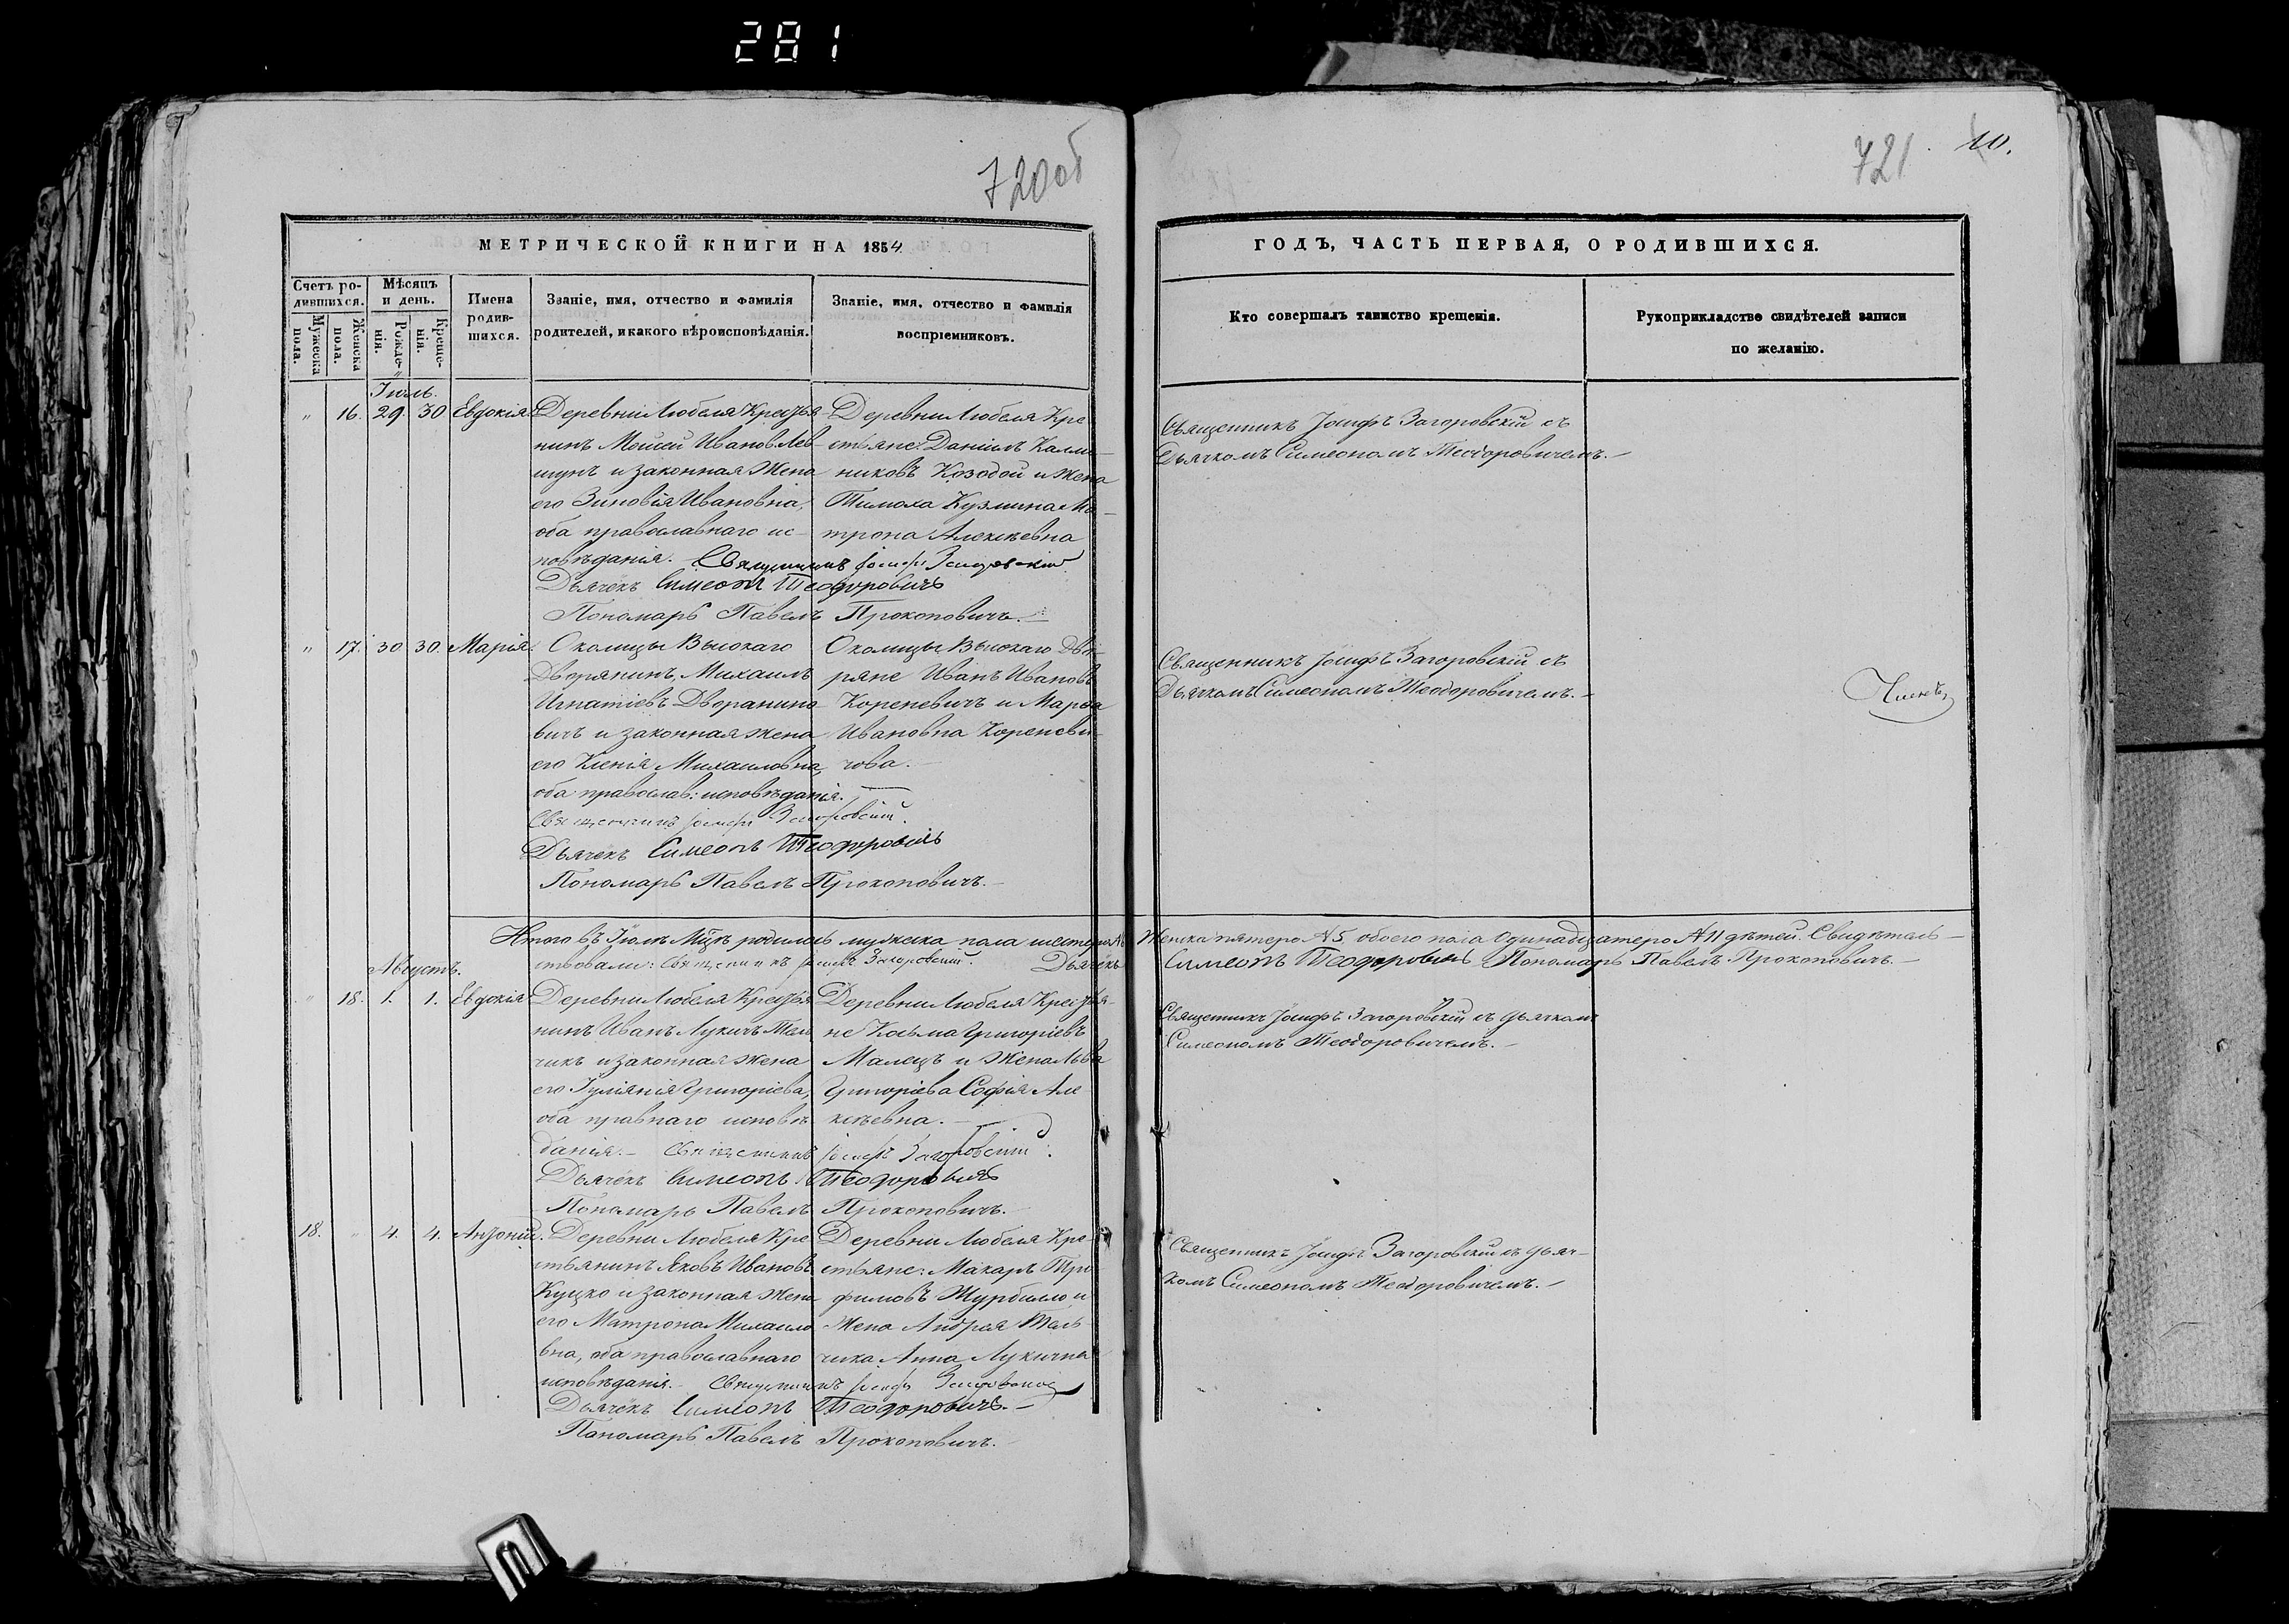 281
720об
721
10.
МЕТРИЧЕСКОЙ КНИГИ НА 1854
ГОДЪ, ЧАСТЬ ПЕРВАЯ, О РОДИВШИХСЯ.
Счетъ ро-
дившихся.
Мужеска
пола.
Женска
пола.
Мѣсяцъ
и день.
Рожде-
нія.
Креще-
нія.
Имена
родив-
шихся.
Званіе, имя, отчество и фамилія
родителей, и какого вѣроисповѣданія.
Званіе, имя, отчество и фамилія
воспріемниковъ.
Кто совершалъ таинство крещенія.
Рукоприкладство свидѣтелей записи
по желанію.
Іюль.
" 16. 29. 30 Евдокія
Деревни Любеля Крестья
нинъ Моисей Ивановъ Лев-
шунъ и законная жена
его Зиновія Ивановна,
оба православнаго ис-
повѣданія. Священникъ Іосифъ Загоровскій
Дьячекъ Симеонъ Теодоровичъ
Пономарь Павелъ Прокоповичъ.
Деревни Любеля Кре
стьяне: Даніилъ Калли-
никовъ Козодой и жена
Тимоха Кузмина Ма-
трона Алексѣевна
Священникъ Іосифъ Загоровскій съ
Дьячкомъ Симеономъ Теодоровичемъ.
" 17. 30 30. Марія.
Околицы Высокаго
Дворянинъ, Михаилъ
Игнатіевъ Дворанино
вичъ и законная жена
его Ксенія Михаиловна,
оба православ: исповѣданія.
Священникъ Іосифъ Загоровскій.
Дьячекъ Симеонъ Теодоровичъ
Пономарь Павелъ Прокоповичъ.
Околицы Высокаго Дво-
ряне Иванъ Ивановъ
Кореневичъ и Марѳа
Ивановна Кореневи-
чова.
Священникъ Іосифъ Загоровскій съ
Дьячкомъ Симеономъ Теодоровичемъ.
Итого въ Іюлѣ Мцѣ родилось мужеска пола шестеро №6 Женска пятеро №5 обоего пола одинадцатеро №11 дѣтей. Свидѣтель-
ствовали: Священникъ Іосифъ Загоровскій. Дьячекъ Симеонъ Теодоровичъ Пономарь Павелъ Прокоповичъ.
Августъ.
" 18. 1. 1. Евдокія
Деревни Любеля Крестья
нинъ Иванъ Лукичъ Таль
чикъ и законная жена
его Іуліянія Григоріева,
оба правнаго исповѣ
данія. Священникъ Іосифъ Загоровскій.
Дьячекъ Симеонъ Теодоровичъ
Пономарь Павелъ Прокоповичъ.
Деревни Любеля Крестья-
не Косьма Григоріевъ
Малецъ и жена Льва
Григоріева Софія Але
ксѣевна.
Священникъ Іосифъ Загоровскій съ дьячкомъ
Симеономъ Теодоровичемъ.
18. " 4. 4. Антоній.
Деревни Любеля Кре
стьянинъ Яковъ Ивановъ
Куцко и законная жена
его Матрона Михаило
вна, оба православнаго
исповѣданія. Священникъ Іосифъ Загоровскій
Дьячекъ Симеонъ Теодоровичъ.
Пономарь Павелъ Прокоповичъ.
Деревни Любеля Кре-
стьяне: Макаръ Тро
фимовъ Журбилло и
жена Андрея Таль
чика Анна Лукична
Священникъ Іосифъ Загоровскій съ дьяч-
комъ Симеономъ Теодоровичемъ.